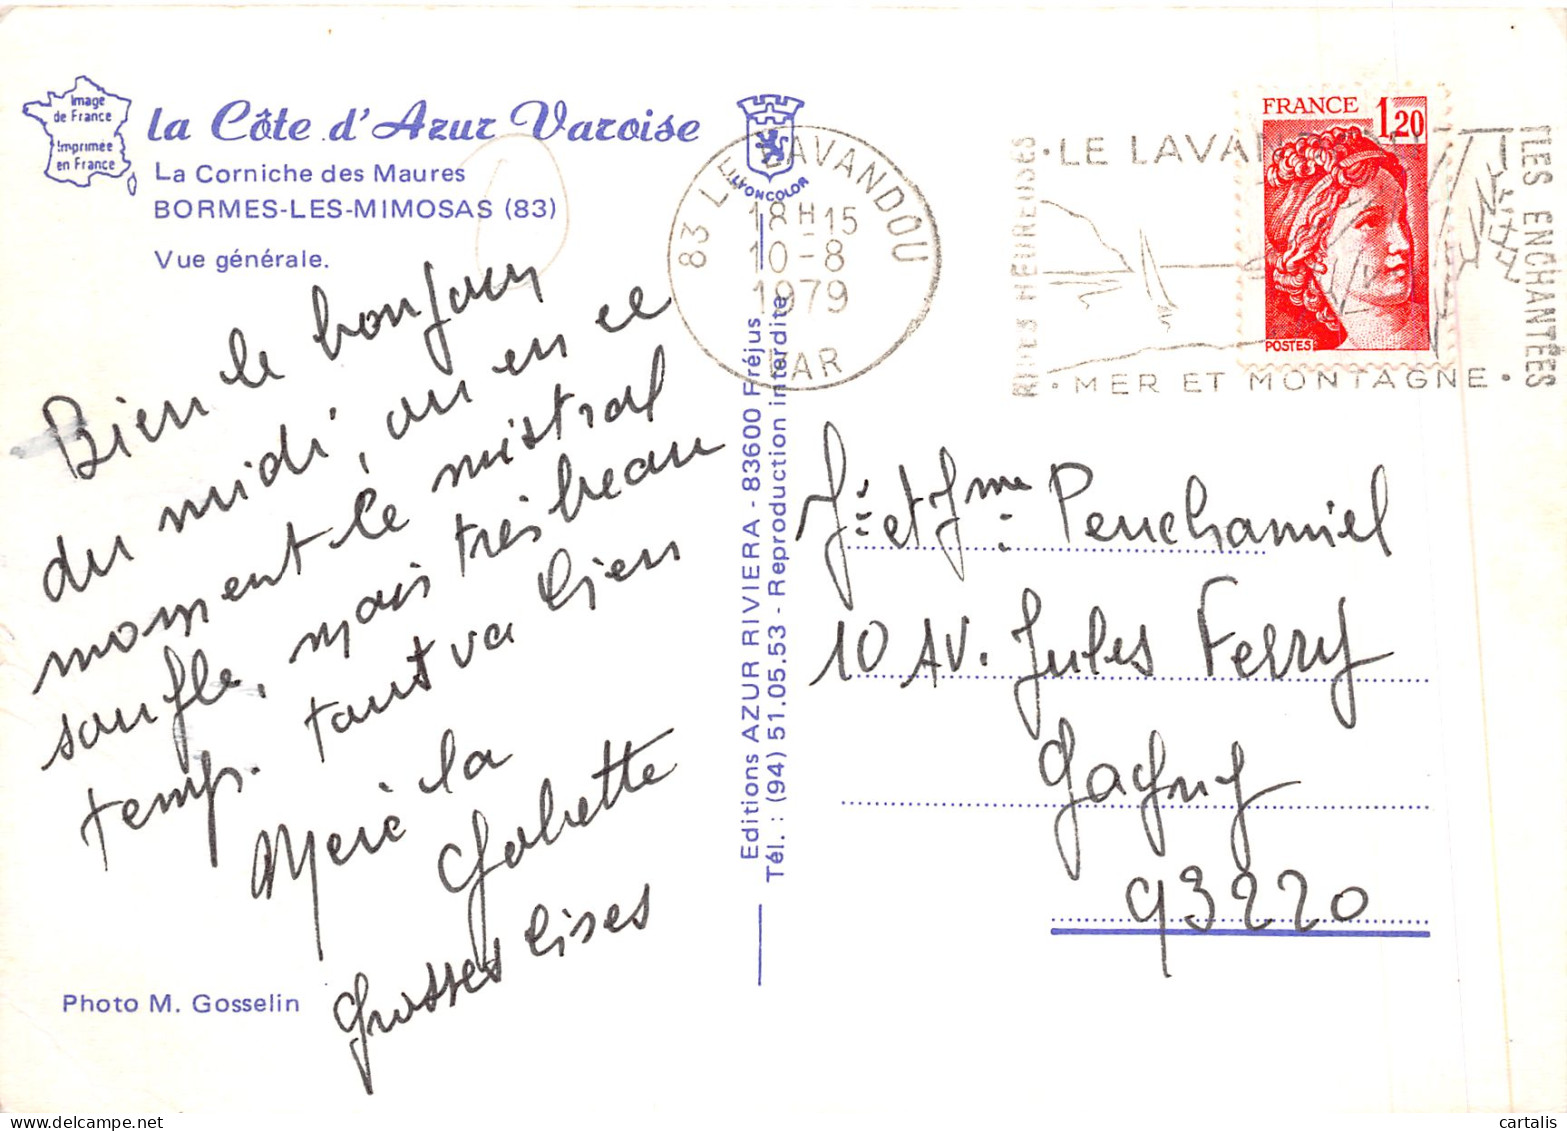 Image
de France
Imprimée
en France
la Côte d'Azur Varoise
La Corniche des Maures
BORMES-LES-MIMOSAS (83)
Vue générale.
Bien le bonjour
du midi, ou en ce
moment le mistral
soufle, mais très beau
temp. tout va bien
la
Grosses bises
Photo M. Gosselin
LYONCOLOR
Editions AZUR RIVIERA - 83600 Fréjus
Tél. : (94) 51.05.53 - Reproduction interdite
83 LE LAVANDOU
18H15
10-8
1979
VAR
HEUREUSES
• LE LAVA
• MER ET MONTAGNE •
ILES ENCHANTEES
FRANCE 1,20
POSTES
et Mme
10 AV. Jules Ferry
Gagny
93220